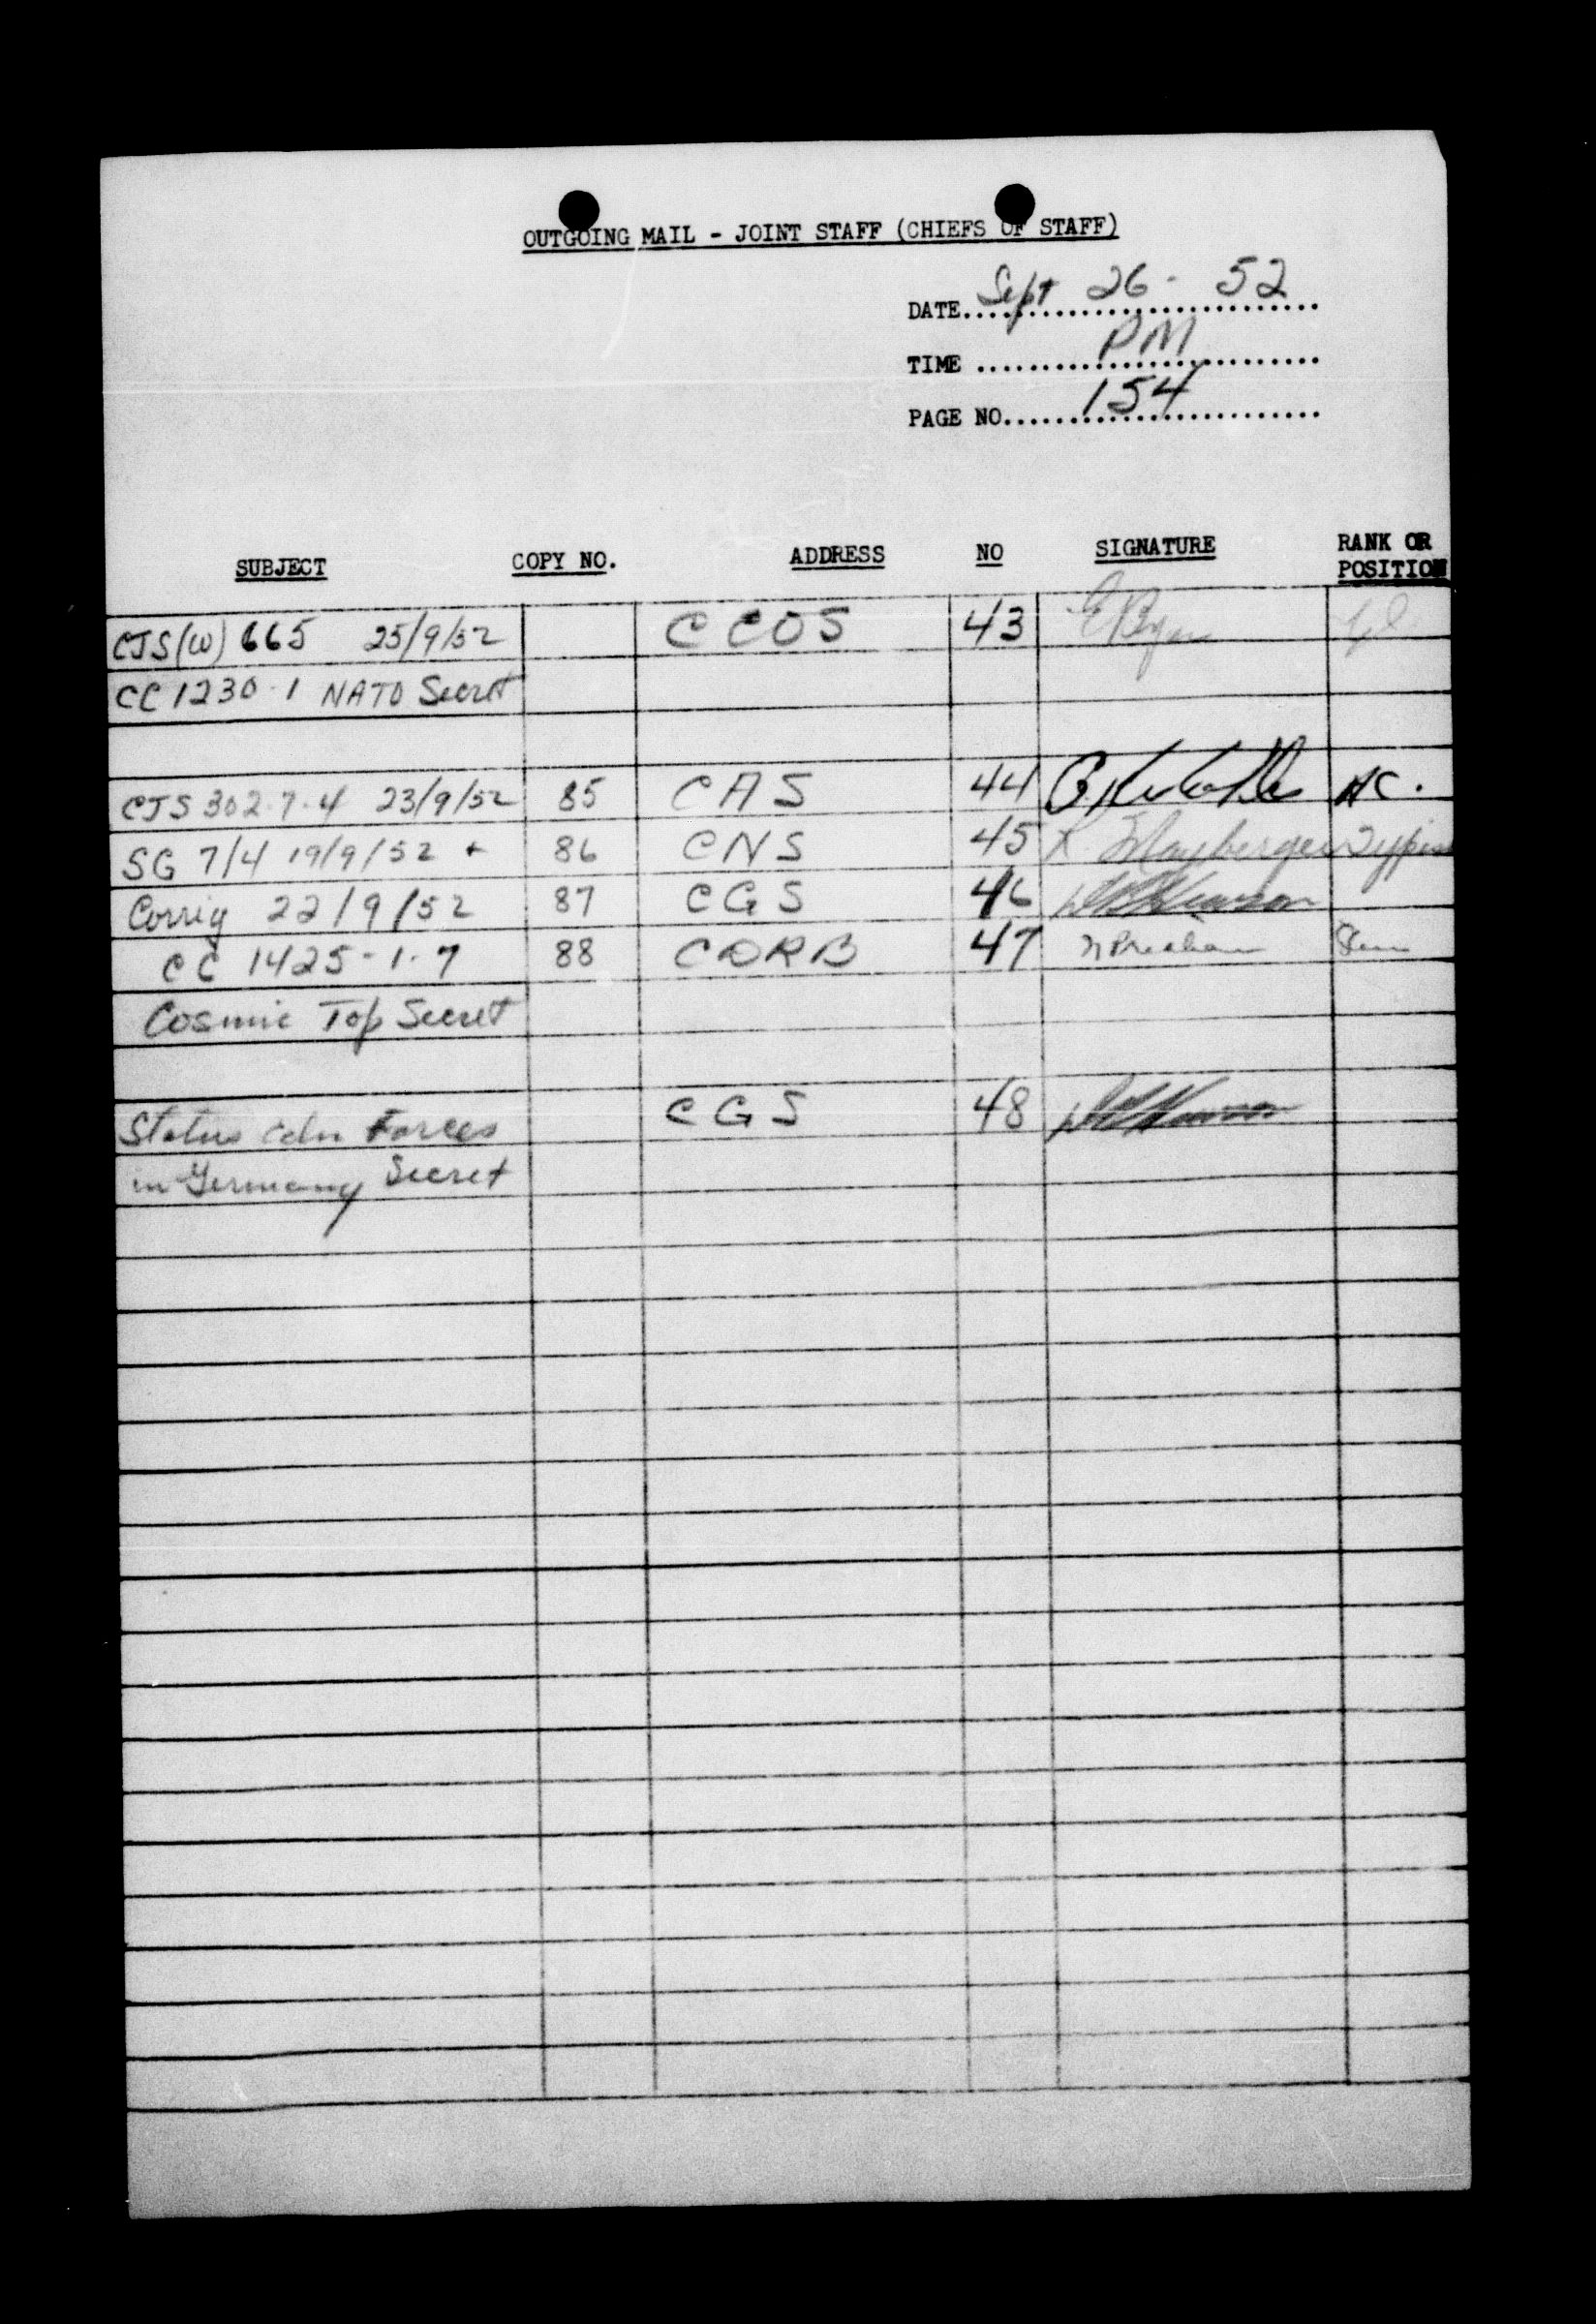 OUTGOING MAIL - JOINT STAFF (CHIEFS OF STAFF)
DATE Sept 26 - 52
TIME PM
PAGE NO. 154
SUBJECT COPY NO. ADDRESS NO SIGNATURE RANK OR POSITION
CJS(W) 665 25/9/52 CCOS 43
CC 1230-1 NATO Secret
CJS 302-7-4 23/9/52 85 CAS 44
SG 7/4 19/9/52 + 86 CNS 45 Mayberger Typist
Corrig 22/9/52 87 CGS 46
CC 1425-1-7 88 CDRB 47
Cosmic Top Secret
Status Cdn Forces CGS 48
in Germany Secret